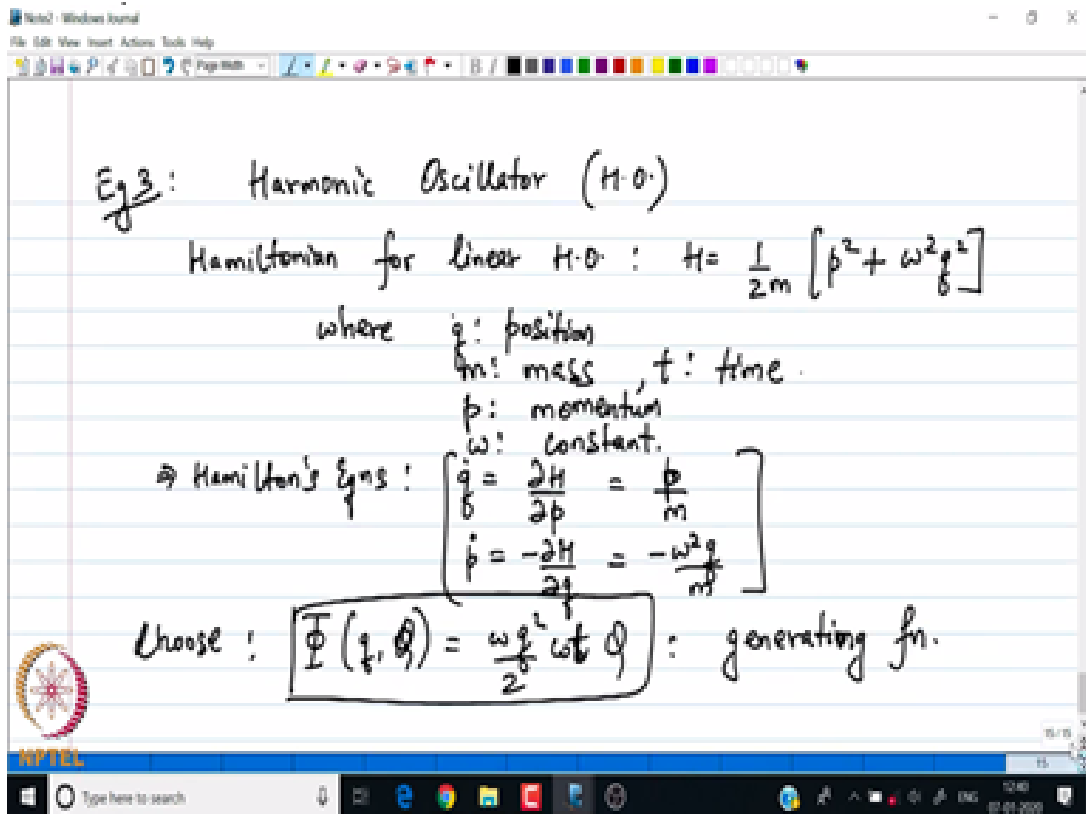 Note2 - Windows Journal
File Edit View Insert Actions Tools Help
Page Width
Eg 3: Harmonic Oscillator (H.O.)
Hamiltonian for linear H.O. : H = 1/2m [p² + ω²q²]
where q: position
m: mass , t: time .
p: momentum
ω: constant.
⇒ Hamilton's Eqns : [ q̇ = ∂H/∂p = p/m
ṗ = -∂H/∂q = -ω²q/m ]
Choose : Φ(q, Q) = ωq²/2 cot Q : generating fn.
NPTEL
15/15
15
Type here to search
ENG
12:40
07-01-2020